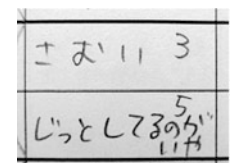 さむい 3
じっとしてるのが 5
いや